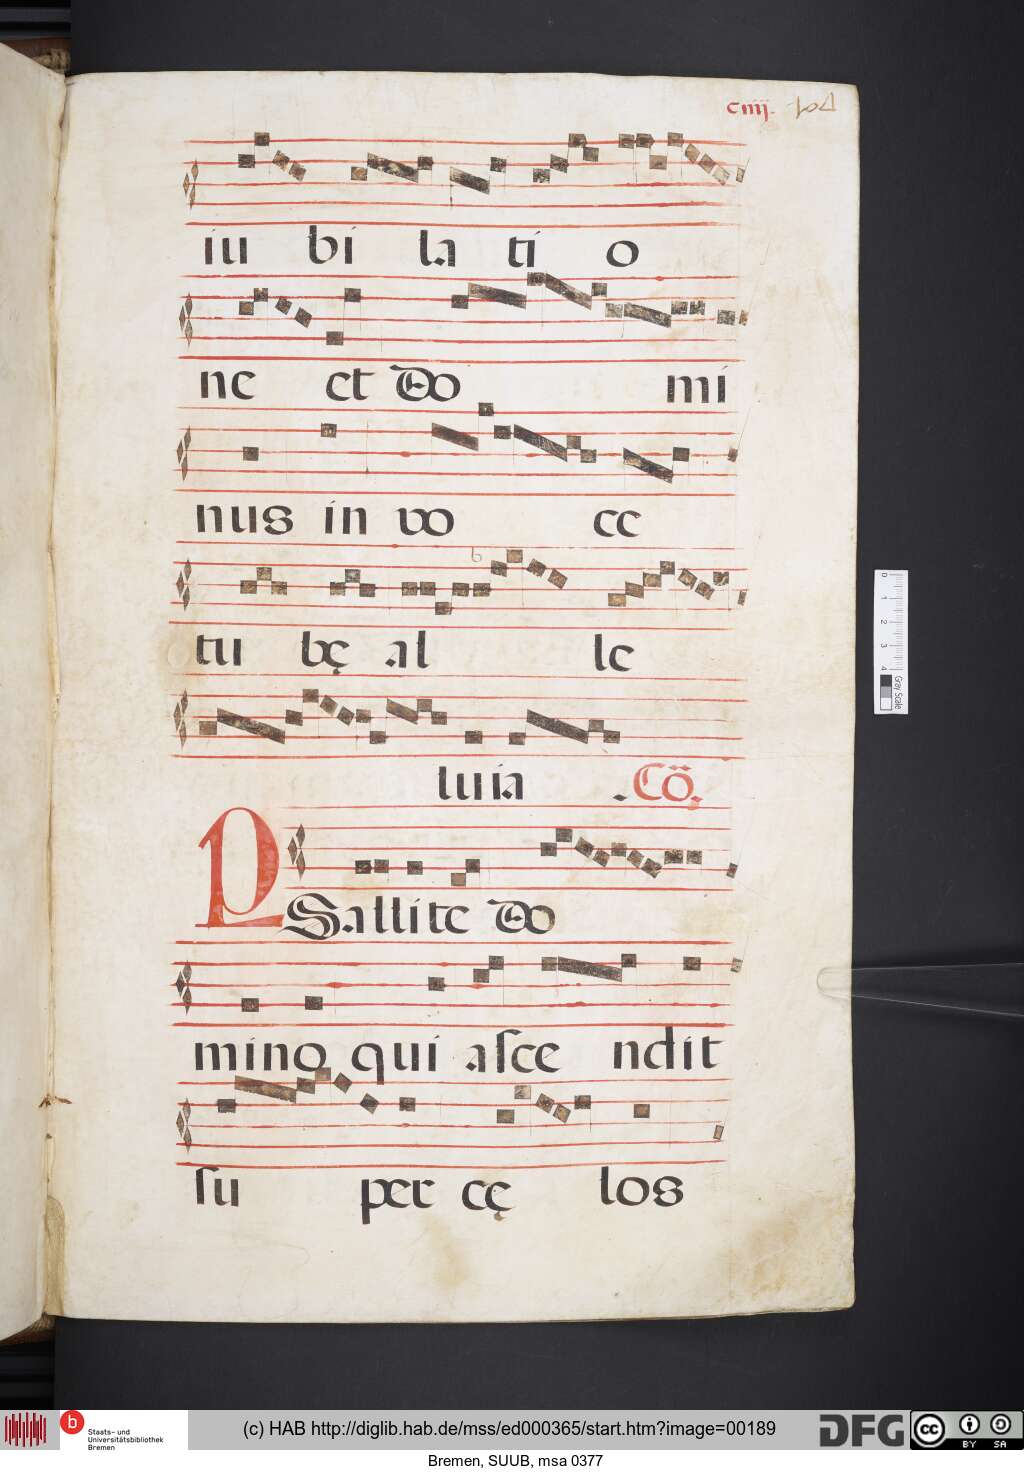 ciiij. 104
iu bi la ti o
ne et Do mi
nus in vo ce
tu bę al le
luia . Cö.
PSallite Do
mino qui asce ndit
su per cę los
0 1 2 3 4 Gray Scale
b Staats- und Universitätsbibliothek Bremen
(c) HAB http://diglib.hab.de/mss/ed000365/start.htm?image=00189
DFG cc BY SA
Bremen, SUUB, msa 0377